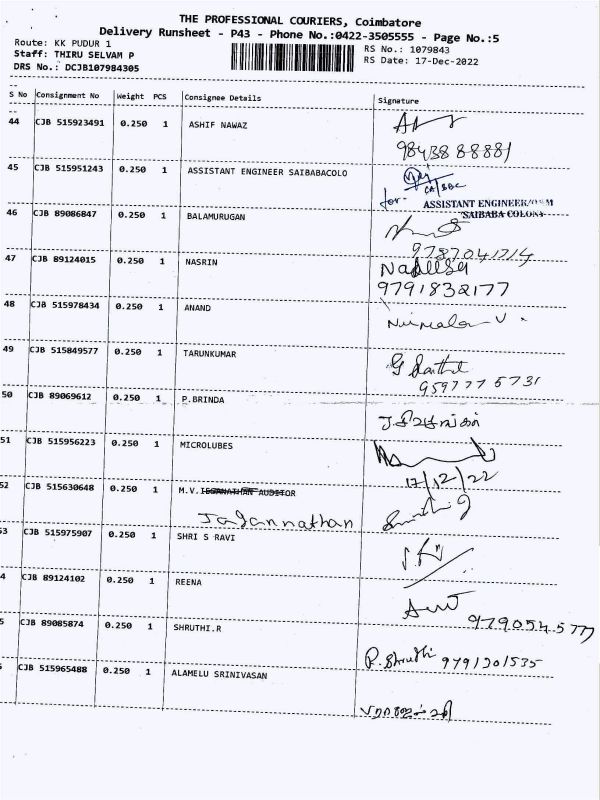 THE PROFESSIONAL COURIERS, Coimbatore
Delivery Runsheet - P43 - Phone No.:0422-3505555 - Page No.:5
Route: KK PUDUR 1
RS No.: 1079843
Staff: THIRU SELVAM P
RS Date: 17-Dec-2022
DRS No.: DCJB107984305
S No Consignment No Weight PCS Consignee Details Signature
44 CJB 515923491 0.250 1 ASHIF NAWAZ
98438 88881
45 CJB 515951243 0.250 1 ASSISTANT ENGINEER SAIBABACOLO
for- ASSISTANT ENGINEER/O&M
SAIBABA COLONY
46 CJB 89086847 0.250 1 BALAMURUGAN
9787041714
47 CJB 89124015 0.250 1 NASRIN
9791832177
48 CJB 515978434 0.250 1 ANAND
Nirmala V.
49 CJB 515849577 0.250 1 TARUNKUMAR
9597776731
50 CJB 89069612 0.250 1 P.BRINDA
51 CJB 515956223 0.250 1 MICROLUBES
17/12/22
52 CJB 515630648 0.250 1 M.V. AUDITOR
Jagannathan
53 CJB 515975907 0.250 1 SHRI S RAVI
4 CJB 89124102 0.250 1 REENA
5 CJB 89085874 0.250 1 SHRUTHI.R
R. Shruthi 9791301535
CJB 515965488 0.250 1 ALAMELU SRINIVASAN